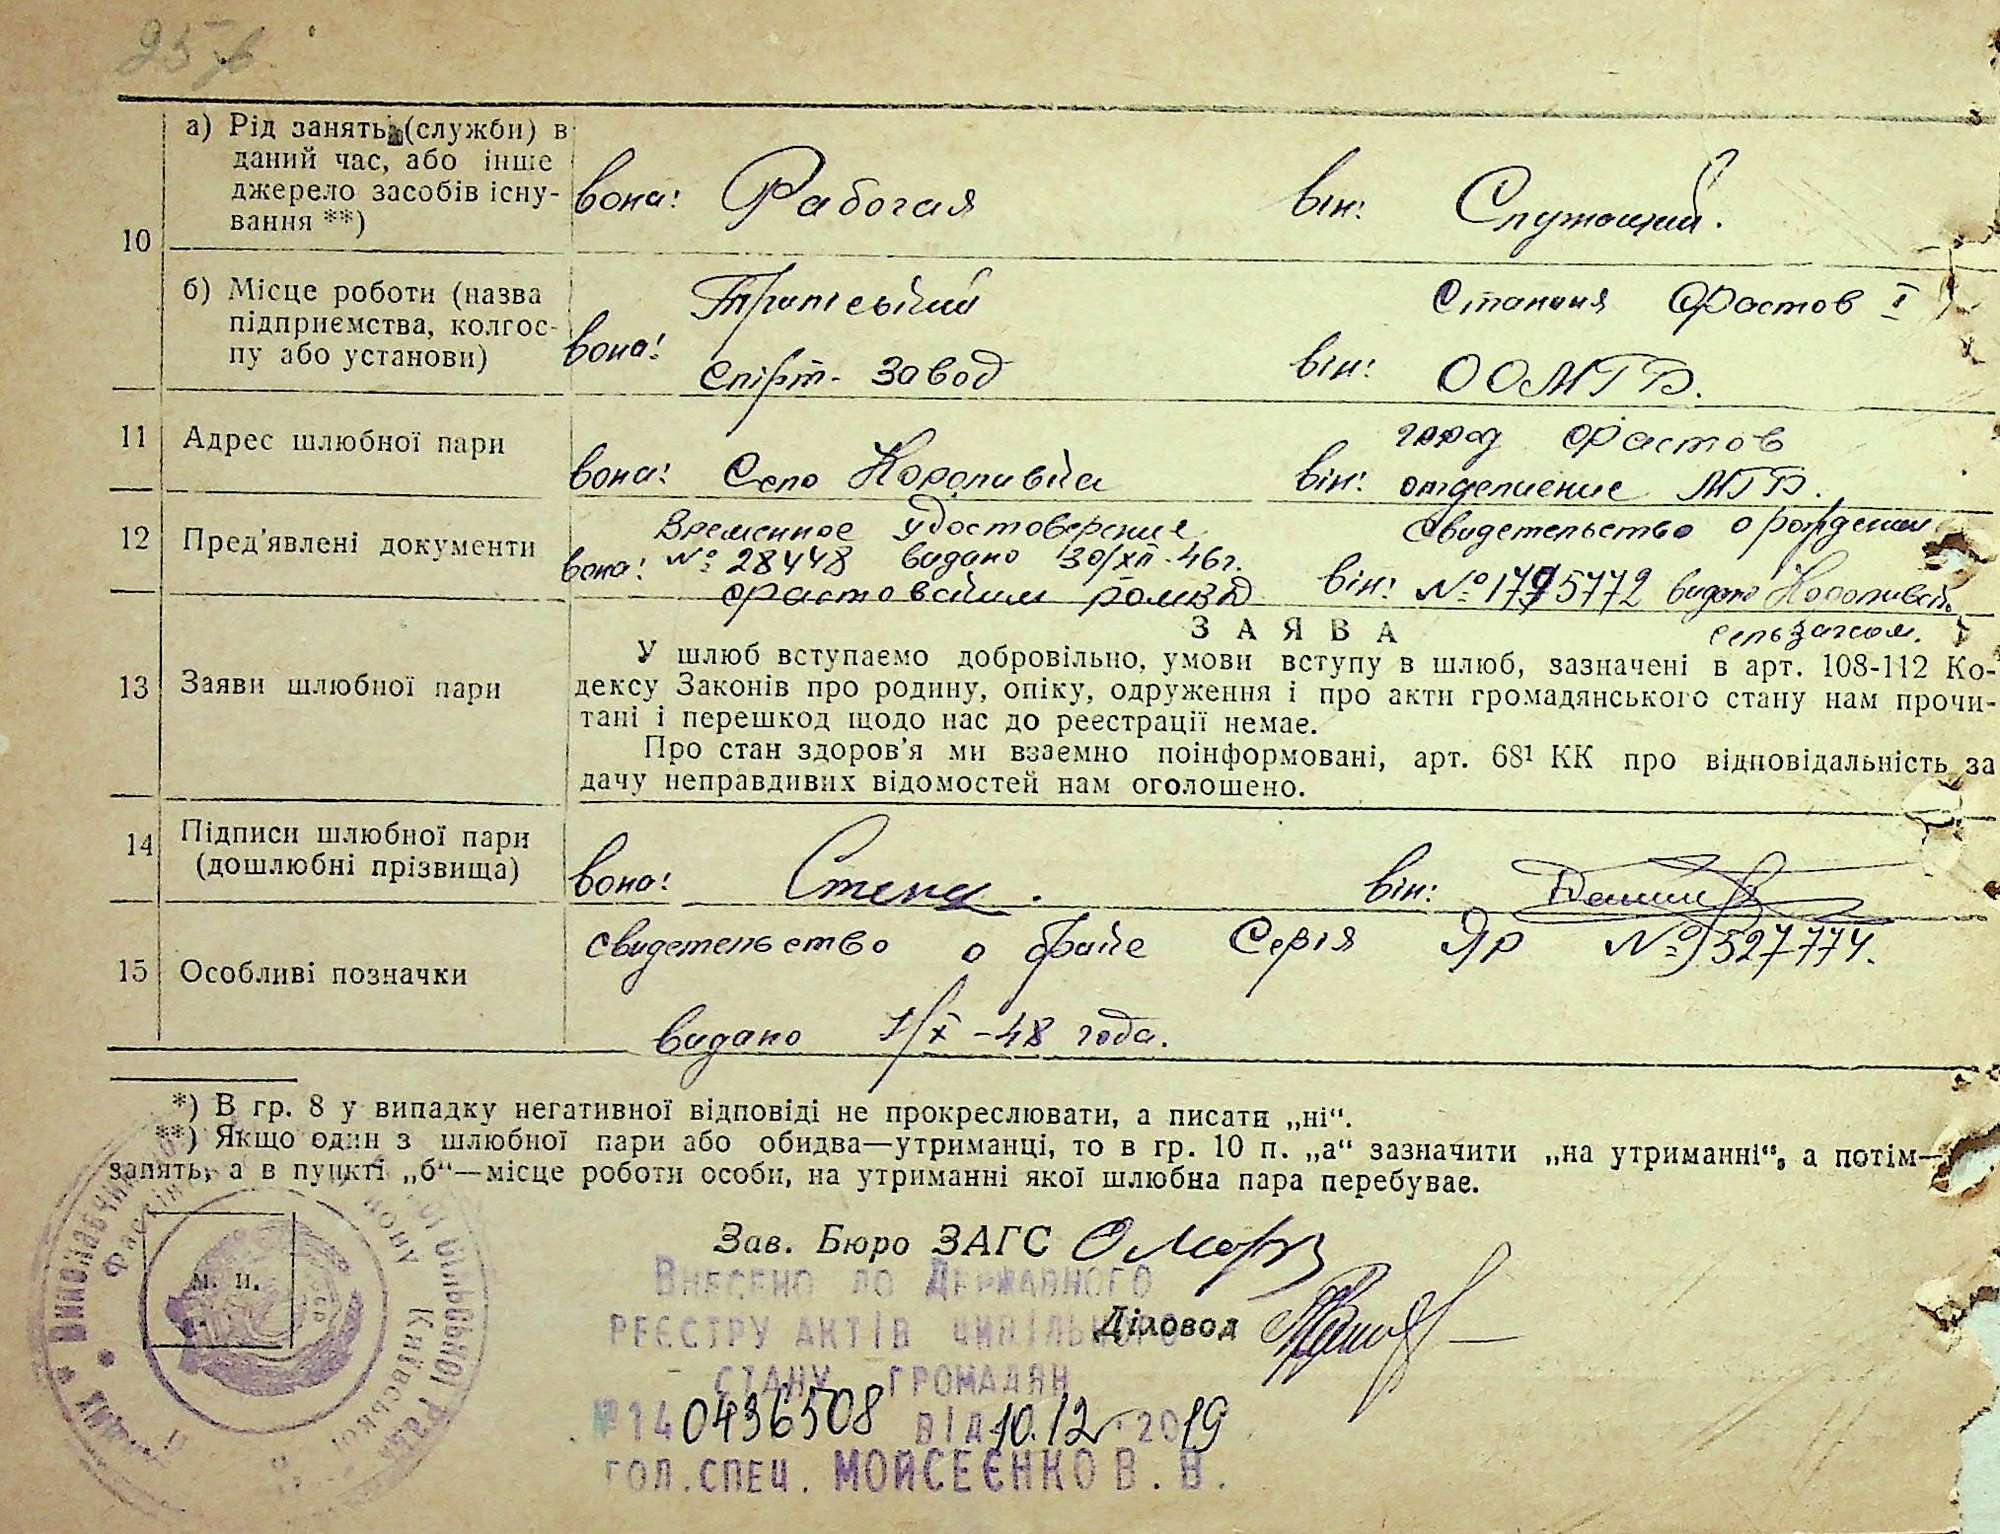 а) Рід занять (служби) в
даний час, або інше
джерело засобів існу-
вання **)
10
вона: Рабочая
він: Служащий.
б) Місце роботи (назва
підприємства, колгос-
пу або установи)
вона:
спірт-завод
Станция Фастов I
він: ООМГБ.
11 Адрес шлюбної пари
вона: Село
город Фастов
він: отделение МГБ.
12 Пред'явлені документи
Временное удостоверение
вона: № 28448 видано 30/XII-46г.
Свидетельство о рождении
він: видано
сельзагсом.
13 Заяви шлюбної пари
ЗАЯВА
У шлюб вступаємо добровільно, умови вступу в шлюб, зазначені в арт. 108-112 Ко-
дексу Законів про родину, опіку, одруження і про акти громадянського стану нам прочи-
тані і перешкод щодо нас до реєстрації немає.
Про стан здоров'я ми взаємно поінформовані, арт. 68¹ КК про відповідальність за
дачу неправдивих відомостей нам оголошено.
14 Підписи шлюбної пари
(дошлюбні прізвища)
вона:
він:
15 Особливі позначки
свидетельство о браке Серія ЯР № 527774.
видано 1/X-48 года.
*) В гр. 8 у випадку негативної відповіді не прокреслювати, а писати „ні“.
**) Якщо один з шлюбної пари або обидва—утриманці, то в гр. 10 п. „а“ зазначити „на утриманні“, а потім—
занять, а в пункті „б“—місце роботи особи, на утриманні якої шлюбна пара перебуває.
м. п.
Зав. Бюро ЗАГС
Діловод
Внесено до Державного
реєстру актів цивільного
стану громадян
№140436508 від 10.12.2019
гол.спец. Мойсеєнко В. В.